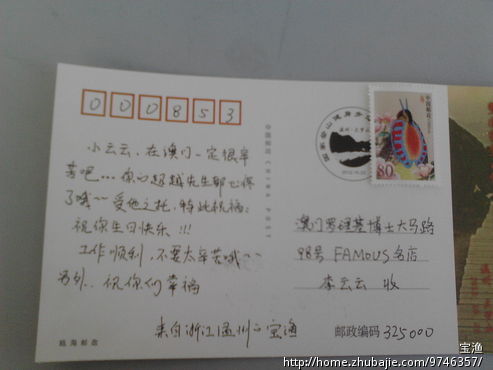 000853
小云云,在澳门一定很辛
苦吧…你的超越先生都心疼
了哦~~ 受他之托,特此祝福:
祝你生日快乐!!!
工作顺利,不要太辛苦哦~~
另外、祝你们幸福
来自浙江温州的宝渔
中国邮政
80
澳门罗理基博士大马路
98号 FAMOUS名店
李云云 收
邮政编码 325000
瓯海邮政
宝渔
http://home.zhubajie.com/9746357/